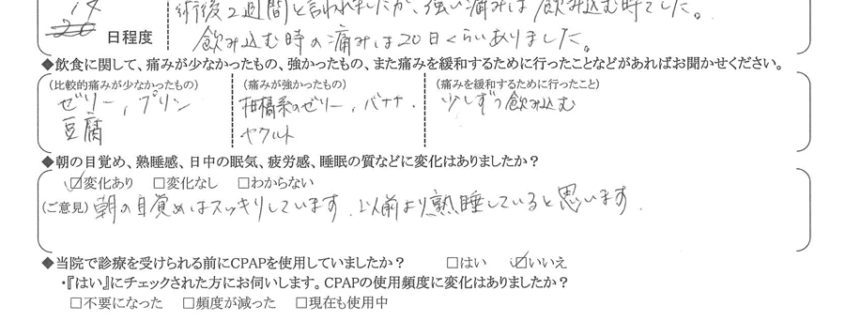 14
20 日程度
術後2週間と言われましたが、強い痛みは飲み込む時でした。
飲み込む時の痛みは20日くらいありました。
◆飲食に関して、痛みが少なかったもの、強かったもの、また痛みを緩和するために行ったことなどがあればお聞かせください。
(比較的痛みが少なかったもの) (痛みが強かったもの) (痛みを緩和するために行ったこと)
ゼリー, プリン 柑橘系のゼリー, バナナ. 少しずつ飲み込む
豆腐 ヤクルト
◆朝の目覚め、熟睡感、日中の眠気、疲労感、睡眠の質などに変化はありましたか?
☑変化あり □変化なし □わからない
(ご意見) 朝の目覚めはスッキリしています. 以前より熟睡していると思います.
◆当院で診療を受けられる前にCPAPを使用していましたか? □はい ☑いいえ
・『はい』にチェックされた方にお伺いします。CPAPの使用頻度に変化はありましたか?
□不要になった □頻度が減った □現在も使用中